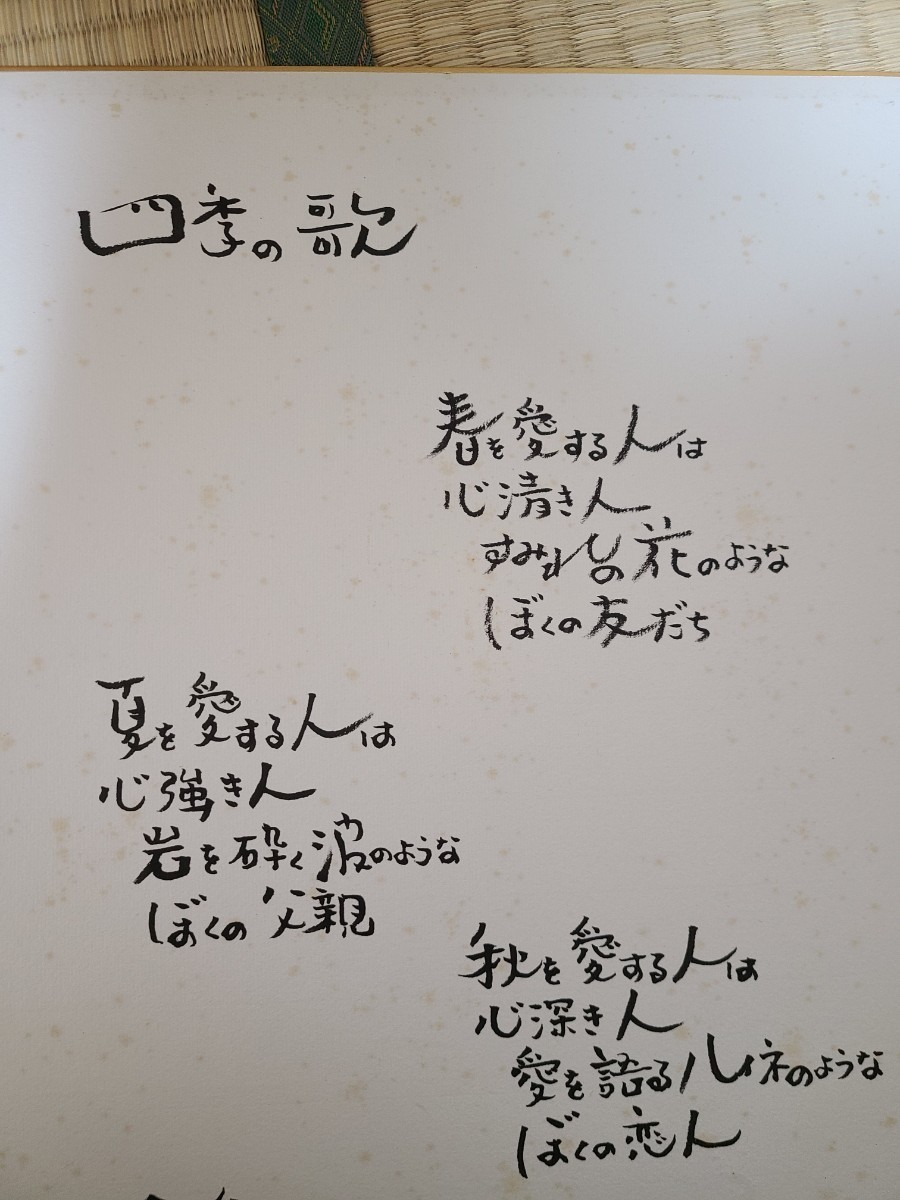 四季の歌
春を愛する人は
心清き人
すみれの花のような
ぼくの友だち
夏を愛する人は
心強き人
岩を砕く波のような
ぼくの父親
秋を愛する人は
心深き人
愛を語るルイネのような
ぼくの恋人